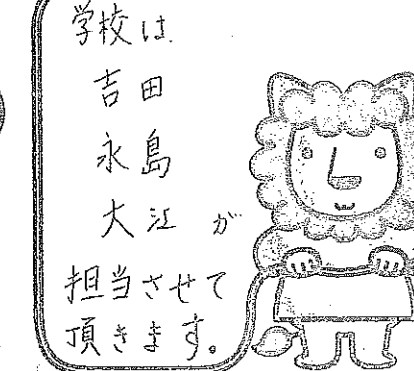 学校は
吉田
永島
大江 が
担当させて
頂きます。